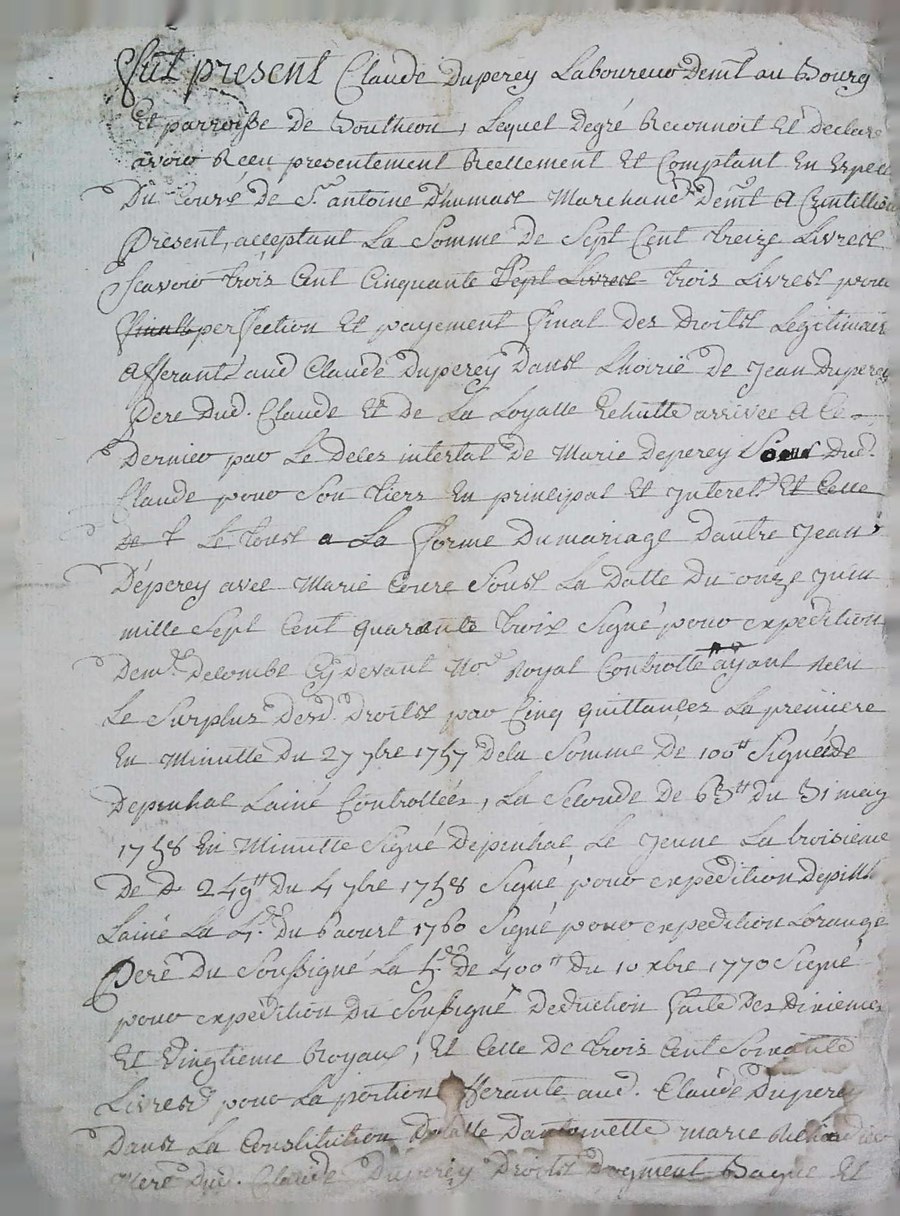 Fut present Claude Duperey Laboureur demt au Bourg
Et parroisse de Boutheon, Lequel degré Reconnoit Et declare
avoir Receu presentement Reellement Et Comptant En Espece
Du Cours de Sr. antoine Marchand demt A
Present, acceptant La Somme de Sept Cent treize Livres
Scavoir trois Cent Cinquante Sept Livres trois Livres pour
finalle perfection Et payement final des droits Legitimair
Afferants aud Claude Duperey Dans Lhoirie de Jean Duperey
Pere dud. Claude Et de La Loyalle Echutte arrivée a Ce
Dernier par Le deces intestat de Marie Deperey Soeur dud.
Claude pour Son tiers En principal Et Interets Et Cette
Le tout a La forme du mariage dautre Jean
Deperey avec Marie Coure Sous La datte du onze Juin
mille Sept Cent quarante trois Signé pour expedition
De me. Delombe Cy devant Nore. Royal Controllé ayant Receu
Le Surplus desd. droits par Cinq quittances La premiere
En Minutte du 27 7bre 1757 de la Somme de 100tt Signée de
Depinhac Lainé Controllées, La Seconde de 63tt du 31 may
1758 En Minutte Signé Depinhac Le Jeune La troisieme
De 249tt du 4 7bre 1758 Signé pour expedition
Lainé La 4e. du 6 aoust 1760 Signé pour expedition Lorange
Pere du Soussigné La 5e. de 400tt du 10 xbre 1770 Signé
pour expédition du Soussigné deduction faite des dixieme
Et Vingtieme Royaux, Et Celle de trois Cent Soixante
Livres pour La portion afferante aud. Claude Duperey
Dans La Constitution Dantoinette marie
Mere dud. Claude Duperey Droits Dogment Bague Et